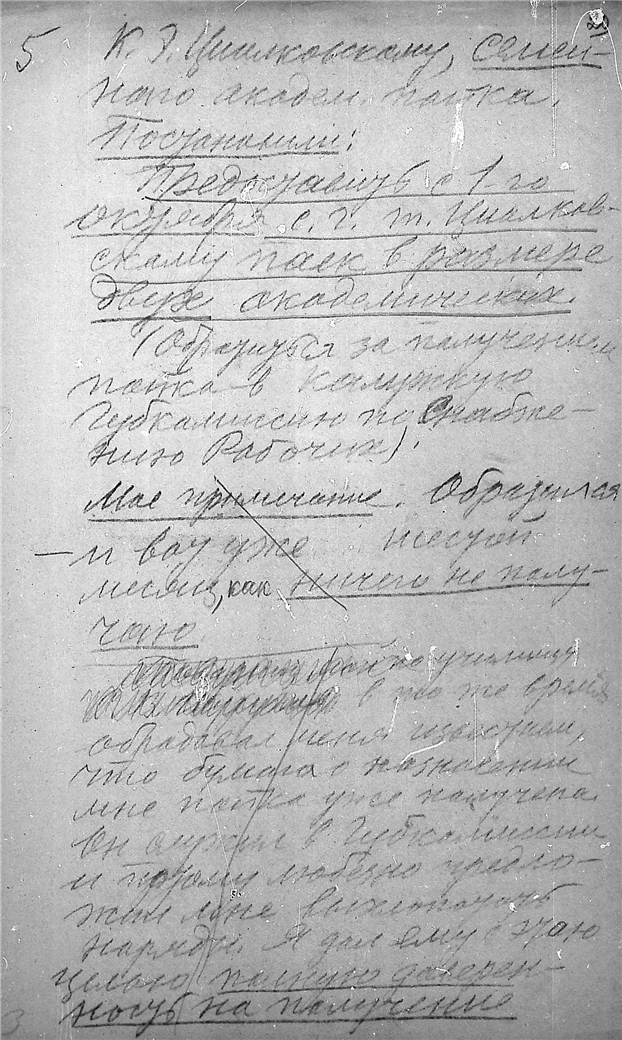 5 К. Э. Циолковскому, семей-
ного академ. пайка.
Постановили:
Предоставить с 1-го
октября с. г. т. Циолков-
скому паек в размере
двух академических.
(Обратиться за получением
пайка в Калужскую
Губкомиссию по Снабже-
нию Рабочих).
Мое примечание. Обратился
– и вот уже шестой
месяц, как ничего не полу-
чаю.
по училищу
в то же время
обрадовал меня известием,
что бумага о назначении
мне пайка уже получена
Он служил в Губкомиссии
и потому любезно предло-
жил мне выхлопотать
наряды. Я дал ему с этою
целью полную доверен-
ность на получение